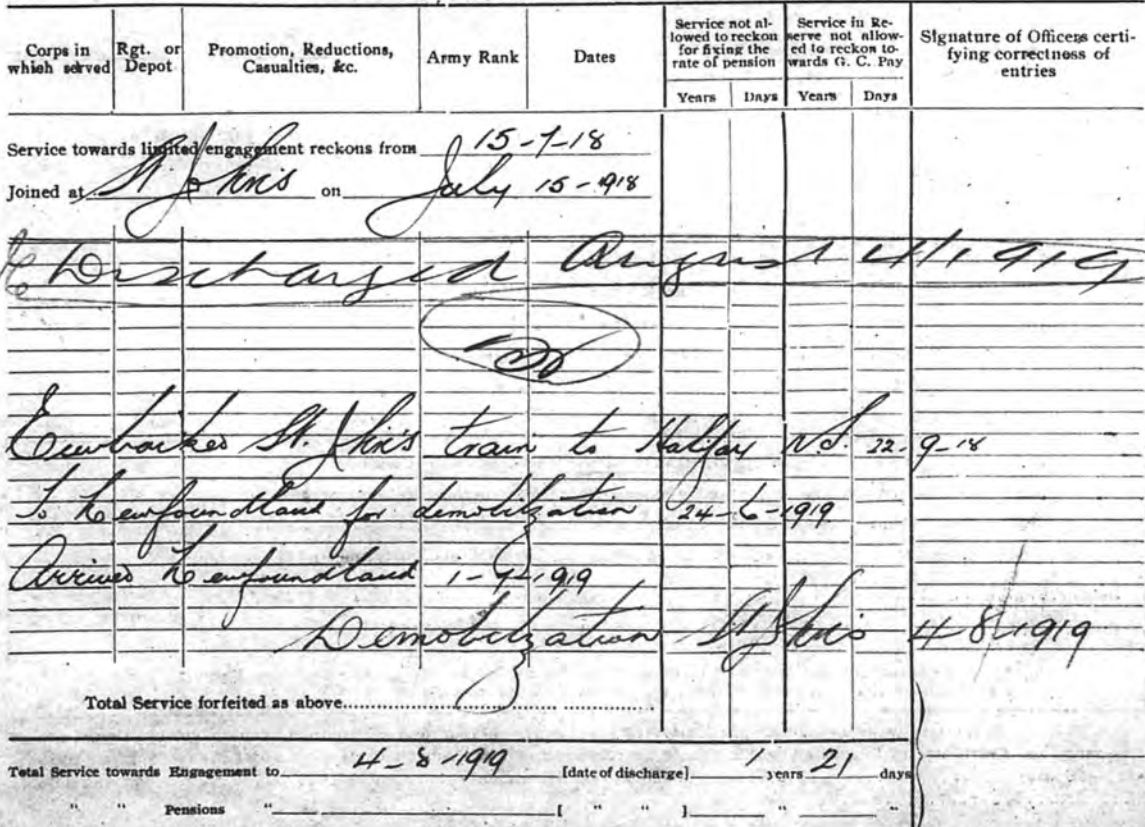 Corps in which served Rgt. or Depot Promotion, Reductions, Casualties, &c. Army Rank Dates Service not allowed to reckon for fixing the rate of pension Service in Reserve not allowed to reckon towards G. C. Pay Signature of Officers certifying correctness of entries
Years Days Years Days
Service towards limited engagement reckons from 15-7-18
Joined at St. John's on July 15-1918
Discharged August 4/1919
Embarked St. John's train to Halifax N.S. 22-9-18
To Newfoundland for demobilization 24-6-1919
Arrived Newfoundland 1-7-1919
Demobilization St John's 4-8-1919
Total Service forfeited as above
Total Service towards Engagement to 4-8-1919 [date of discharge] 1 years 21 days
" " Pensions " [ " " ] " "